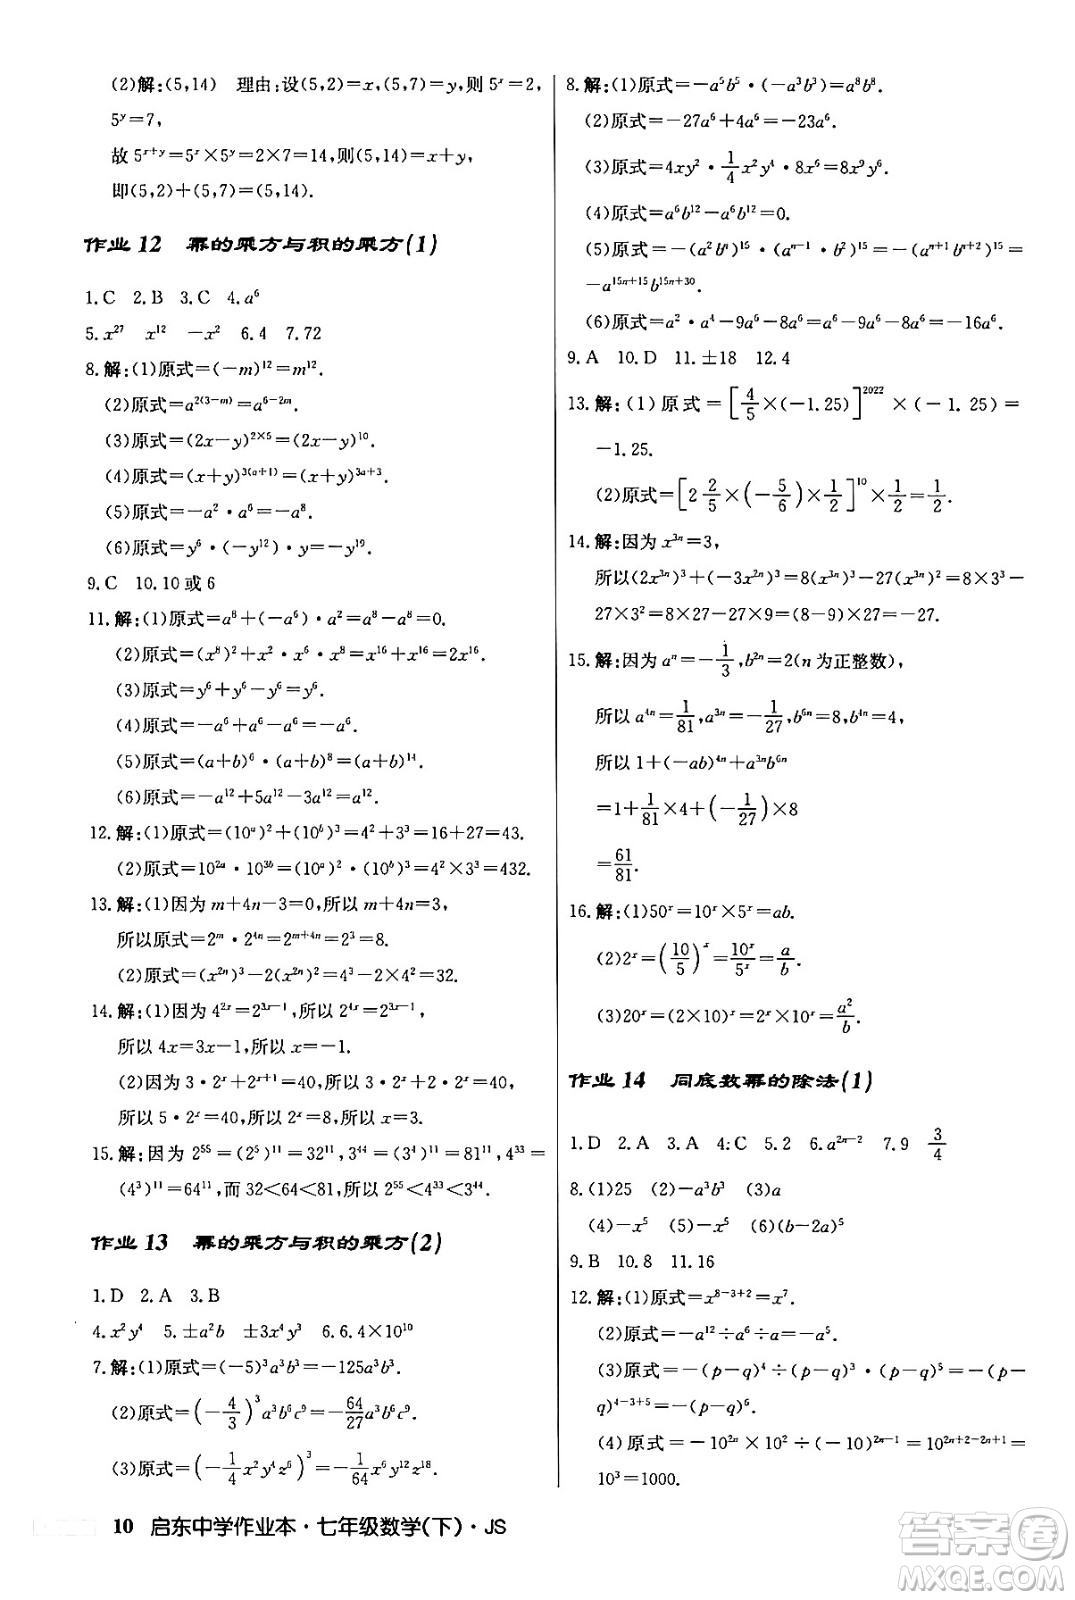 (2)解:(5,14)　理由:设(5,2)=x,(5,7)=y,则 5ˣ=2,
5ʸ=7,
故 5ˣ⁺ʸ=5ˣ×5ʸ=2×7=14,则(5,14)=x+y,
即(5,2)+(5,7)=(5,14).
作业 12　幂的乘方与积的乘方(1)
1.C　2.B　3.C　4.a^6
5.x^27　x^12　-x^2　6.4　7.72
8.解:(1)原式=(-m)^12=m^12.
(2)原式=a^{2(3-m)}=a^{6-2m}.
(3)原式=(2x-y)^{2×5}=(2x-y)^10.
(4)原式=(x+y)^{3(a+1)}=(x+y)^{3a+3}.
(5)原式=-a^2·a^6=-a^8.
(6)原式=y^6·(-y^12)·y=-y^19.
9.C　10.10 或 6
11.解:(1)原式=a^8+(-a^6)·a^2=a^8-a^8=0.
(2)原式=(x^8)^2+x^2·x^6·x^8=x^16+x^16=2x^16.
(3)原式=y^6+y^6-y^6=y^6.
(4)原式=-a^6+a^6-a^6=-a^6.
(5)原式=(a+b)^6·(a+b)^8=(a+b)^14.
(6)原式=-a^12+5a^12-3a^12=a^12.
12.解:(1)原式=(10^a)^2+(10^b)^3=4^2+3^3=16+27=43.
(2)原式=10^{2a}·10^{3b}=(10^a)^2·(10^b)^3=4^2×3^3=432.
13.解:(1)因为 m+4n-3=0,所以 m+4n=3,
所以原式=2^m·2^{4n}=2^{m+4n}=2^3=8.
(2)原式=(x^{2n})^3-2(x^{2n})^2=4^3-2×4^2=32.
14.解:(1)因为 4^{2x}=2^{3x-1},所以 2^{4x}=2^{3x-1},
所以 4x=3x-1,所以 x=-1.
(2)因为 3·2^x+2^{x+1}=40,所以 3·2^x+2·2^x=40,
所以 5·2^x=40,所以 2^x=8,所以 x=3.
15.解:因为 2^55=(2^5)^11=32^11,3^44=(3^4)^11=81^11,4^33=
(4^3)^11=64^11,而 32<64<81,所以 2^55<4^33<3^44.
作业 13　幂的乘方与积的乘方(2)
1.D　2.A　3.B
4.x^2y^4　5.±a^2b　±3x^4y^3　6.6.4×10^10
7.解:(1)原式=(-5)^3a^3b^3=-125a^3b^3.
(2)原式=(-4/3)^3a^3b^6c^9=-64/27a^3b^6c^9.
(3)原式=(-1/4x^2y^4z^6)^3=-1/64x^6y^12z^18.
8.解:(1)原式=-a^5b^5·(-a^3b^3)=a^8b^8.
(2)原式=-27a^6+4a^6=-23a^6.
(3)原式=4xy^2·1/4x^2y^4·8x^6=8x^9y^6.
(4)原式=a^6b^12-a^6b^12=0.
(5)原式=-(a^2b^n)^15·(a^{n-1}·b^2)^15=-(a^{n+1}b^{n+2})^15=
-a^{15n+15}b^{15n+30}.
(6)原式=a^2·a^4-9a^6-8a^6=a^6-9a^6-8a^6=-16a^6.
9.A　10.D　11.±18　12.4
13.解:(1)原式=[4/5×(-1.25)]^2022×(-1.25)=
-1.25.
(2)原式=[2 2/5×(-5/6)×1/2]^10×1/2=1/2.
14.解:因为 x^{3n}=3,
所以(2x^{3n})^3+(-3x^{2n})^3=8(x^{3n})^3-27(x^{3n})^2=8×3^3-
27×3^2=8×27-27×9=(8-9)×27=-27.
15.解:因为 a^n=-1/3,b^{2n}=2(n 为正整数),
所以 a^{4n}=1/81,a^{3n}=-1/27,b^{6n}=8,b^{4n}=4,
所以 1+(-ab)^{4n}+a^{3n}b^{6n}
=1+1/81×4+(-1/27)×8
=61/81.
16.解:(1)50^x=10^x×5^x=ab.
(2)2^x=(10/5)^x=10^x/5^x=a/b.
(3)20^x=(2×10)^x=2^x×10^x=a^2/b.
作业 14　同底数幂的除法(1)
1.D　2.A　3.A　4.C　5.2　6.a^{2n-2}　7.9　3/4
8.(1)25　(2)-a^3b^3　(3)a
(4)-x^5　(5)-x^5　(6)(b-2a)^5
9.B　10.8　11.16
12.解:(1)原式=x^{8-3+2}=x^7.
(2)原式=-a^12÷a^6÷a=-a^5.
(3)原式=-(p-q)^4÷(p-q)^3·(p-q)^5=-(p-
q)^{4-3+5}=-(p-q)^6.
(4)原式=-10^{2n}×10^2÷(-10)^{2n-1}=10^{2n+2-2n+1}=
10^3=1000.
10　启东中学作业本·七年级数学(下)·JS
答案圈
MXQE.COM